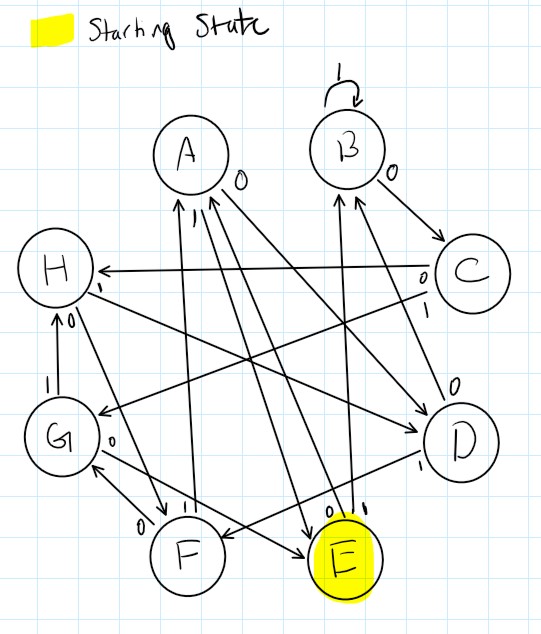 Starting State
1
A
B
0
0
1
H
C
1
0
0
1
1
0
G
0
D
0
1
1
0
0
1
F
E